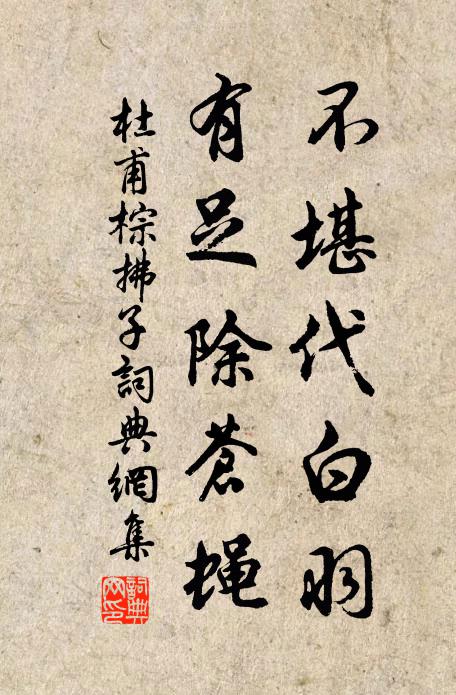 不堪代白羽
有足除苍蝇
杜甫棕拂子詞典網集
詞典網印